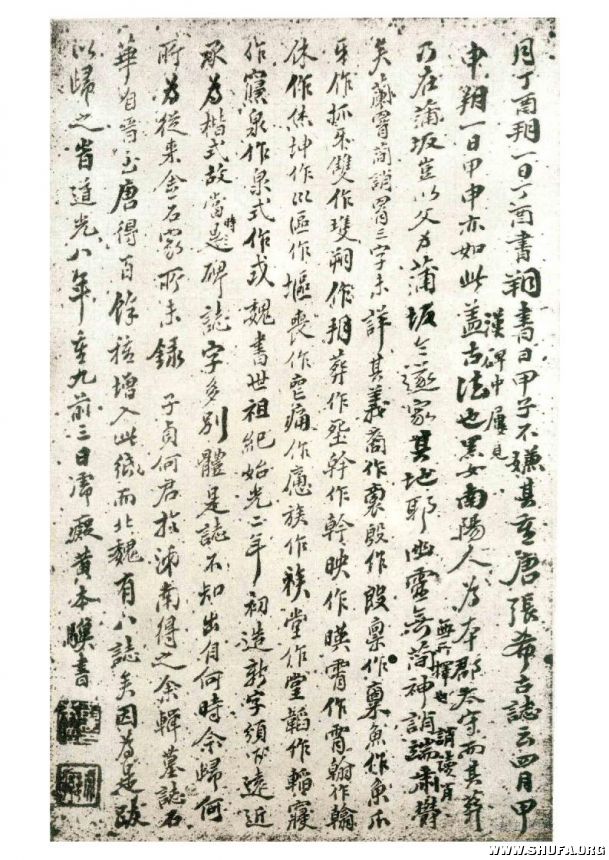 月丁酉朔一日丁酉書朔書日甲子不嫌其重唐張希古誌云四月甲
申朔一日甲申亦如此蓋古法也黑女南陽人為本郡太守而其葬
漢碑中屢見
乃在蒲坂豈以父為蒲坂令遂家其地耶幽靈無簡神誚端肅響
無所擇也
誚讀肖
矣簡誚三字未詳其義裔作殷作稟作魚作爪
牙作抓牙雙作朔作葬作塟幹作幹映作暎霄作翰作
休作烋坤作巛區作塸喪作痛作族作堂作韜作寢
作泉作式作魏書世祖紀始光二年初造新字頒下遠近
永為楷式故當是時碑誌字多別體是誌不知出自何時余歸何
時為從來金石家所未錄 子貞何君於泲南得之余輯墓誌石
華自晉至唐得百餘種增入此紙而北魏有八誌矣因為是跋
以歸之時道光八年重九前三日虎癡黃本驥書
WWW.SHUFA.ORG